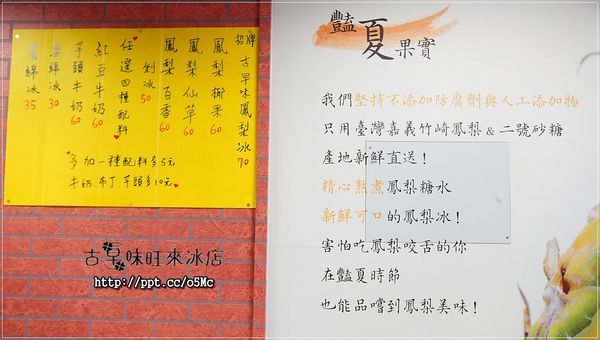 招牌 古早味鳳梨冰 70
鳳梨椰果 60
鳳梨仙草 60
鳳梨百香 60
剉冰 50
任選四種配料
紅豆牛奶 60
芋頭牛奶 60
雪綿冰 30
蛋綿冰 35
多加一種配料多5元
牛奶.布丁.芋頭多10元
古早味旺來冰店
http://ppt.cc/o5Mc
豔夏果實
我們堅持不添加防腐劑與人工添加物
只用臺灣嘉義竹崎鳳梨&二號砂糖
產地新鮮直送!
精心熬煮鳳梨糖水
新鮮可口的鳳梨冰!
害怕吃鳳梨咬舌的你
在豔夏時節
也能品嚐到鳳梨美味!